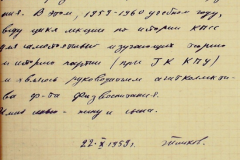 ния. В этом, 1959-1960 учебном году,
веду цикл лекций по истории КПСС
для самостоятельно изучающих теорию
и историю партии (при ГК КПУ)
и являюсь руководителем агитколлектива
ф-та Физвоспитания.
Имею семью - жену и сына.
22-X 1959г.